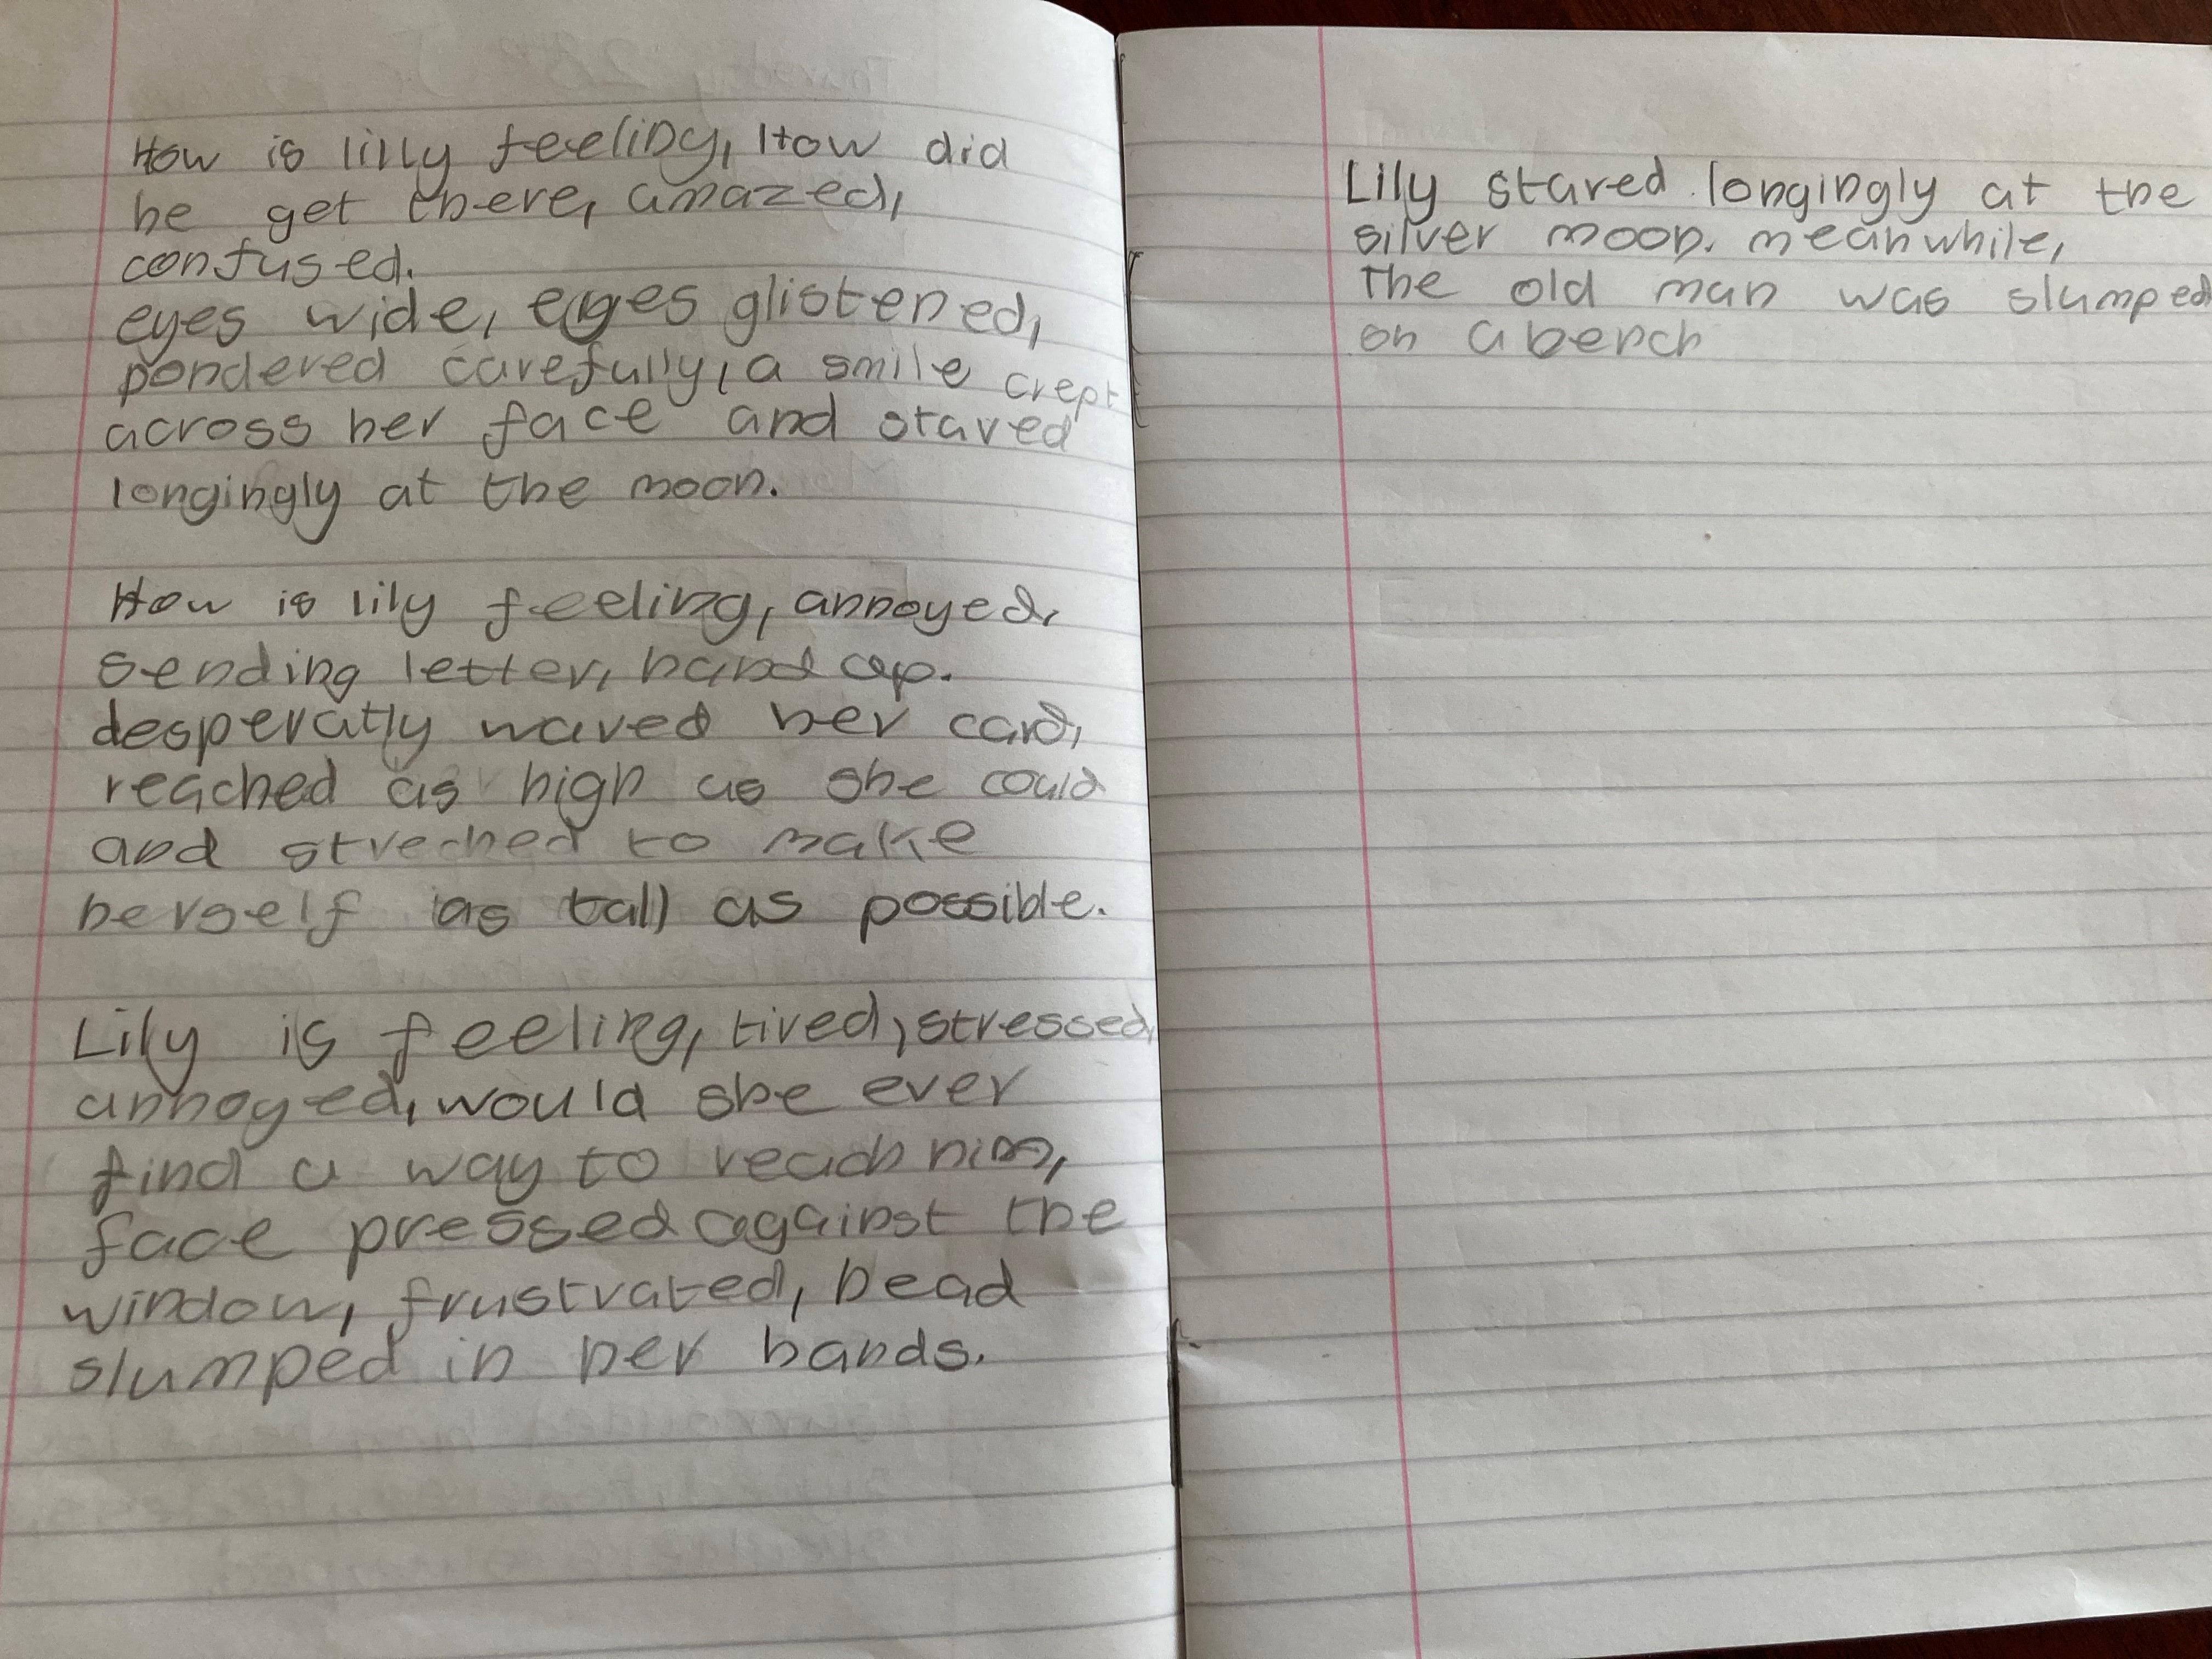 How is lilly feeling, How did
he get there, amazed,
confused.
eyes wide, eyes glistened,
pondered carefully, a smile crept
across her face and stared
longingly at the moon.
How is lily feeling, annoyed,
sending letter, hand up.
desperatly waved her card,
reached as high as she could
and streched to make
herself as tall as possible.
Lily is feeling, tired, stressed,
annoyed, would she ever
find a way to reach him,
face pressed against the
window, frustrated, head
slumped in her hands.
Lily stared longingly at the
silver moon. meanwhile,
The old man was slumped
on a bench